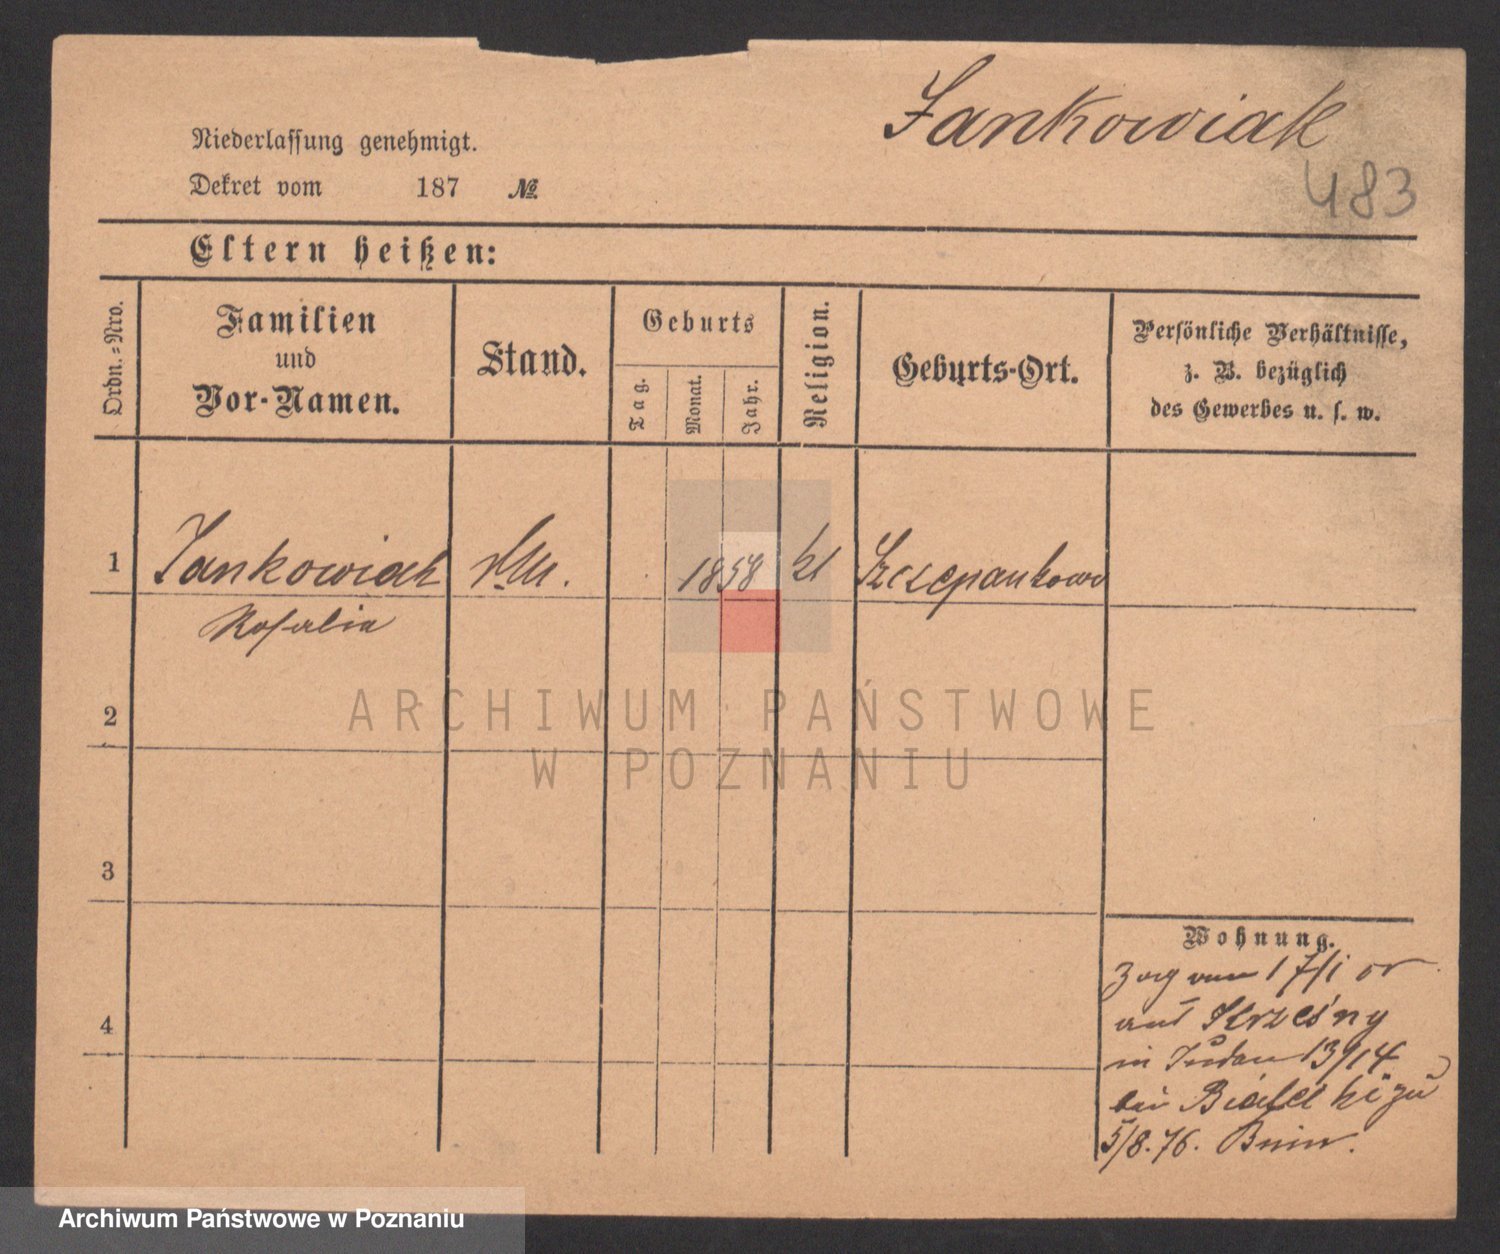 Jankowiak
483
Niederlassung genehmigt.
Dekret vom 187 №
Eltern heißen:
Ordn.=Nro.
Familien
und
Vor-Namen.
Stand.
Geburts
Tag.
Monat.
Jahr.
Religion.
Geburts-Ort.
Persönliche Verhältnisse,
z. B. bezüglich
des Gewerbes u. s. w.
1 Jankowiak 1858 kl Szczepankowo
Rosalia
2
3
4
Wohnung.
Zog vom 17/1 cr
aus Krzesiny
in Juden 13/14
bei zu
5/8. 76. Bnin.
ARCHIWUM PAŃSTWOWE
W POZNANIU
Archiwum Państwowe w Poznaniu